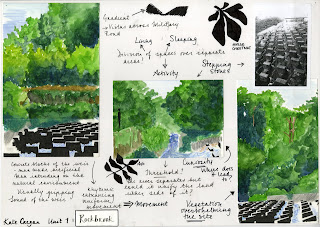 Gradient
Vistas across Military
Road
Living Sleeping
Division of spaces over separate
areas?
Activity
Stepping
Stones
HORSE
CHESTNUT
Concrete blocks of the weir
- man made artificial
than intruding on the
natural environment
Visually gripping
Sound of the weir
Rhythmic
entrancing
uniform
movement
Threshold?
The river separates and
could it unify the land
either side of it?
Curiosity
Where does
it lead
to?
Movement
Vegetation
overwhelming
the site
Kate Cregan Unit 1 : Rockbrook